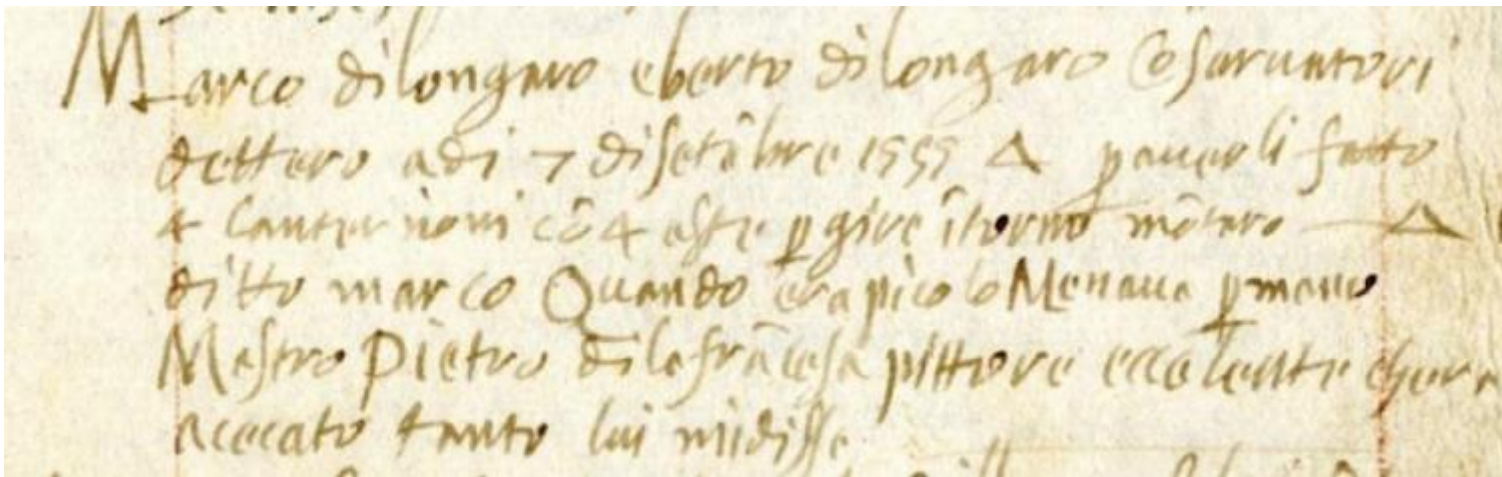 Marco di longaro e berto di longaro Cõservatori
dettero a di 7 di setẽbre 1555 Δ p averli fatto
4 lanternoni cõ 4 aste p gire ĩtorno mõtaro Δ
ditto marco Quando era picolo Menava p mano
Mestro Pietro di la frãcesca pittore eccelente che era
acecato tanto lui mi disse